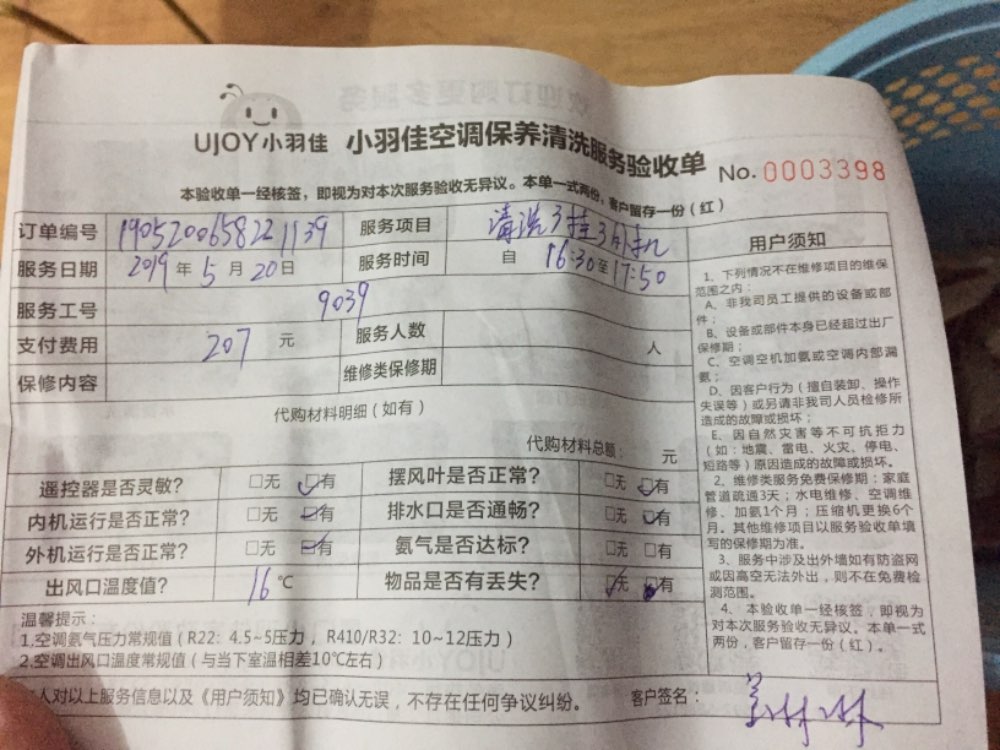 UJOY小羽佳 小羽佳空调保养清洗服务验收单 No. 0003398
本验收单一经核签，即视为对本次服务验收无异议。本单一式两份，客户留存一份（红）
订单编号 190520065822 1139 服务项目 清洗3挂3外机
服务日期 2019 年 5 月 20 日 服务时间 自 16:30 至 17:50
服务工号 9039
支付费用 207 元 服务人数 人
保修内容 维修类保修期
代购材料明细（如有）
代购材料总额： 元
遥控器是否灵敏? □无 □有 摆风叶是否正常? □无 □有
内机运行是否正常? □无 □有 排水口是否通畅? □无 □有
外机运行是否正常? □无 □有 氨气是否达标? □无 □有
出风口温度值? 16 ℃ 物品是否有丢失? □无 □有
温馨提示：
1.空调氨气压力常规值（R22: 4.5~5压力，R410/R32: 10~12压力）
2.空调出风口温度常规值（与当下室温相差10℃左右）
人对以上服务信息以及《用户须知》均已确认无误，不存在任何争议纠纷。 客户签名：
用户须知
1、下列情况不在维修项目的维保
范围之内：
A、非我司员工提供的设备或部
件；
B、设备或部件本身已经超过出厂
保修期；
C、空调空机加氨或空调内部漏
氨；
D、因客户行为（擅自装卸、操作
失误等）或另请非我司人员检修所
造成的故障或损坏；
E、因自然灾害等不可抗拒力
（如：地震、雷电、火灾、停电、
短路等）原因造成的故障或损坏。
2、维修类服务免费保修期：家庭
管道疏通3天；水电维修、空调维
修、加氨1个月；压缩机更换6个
月。其他维修项目以服务验收单填
写的保修期为准。
3、服务中涉及出外墙如有防盗网
或因高空无法外出，则不在免费检
测范围。
4、本验收单一经核签，即视为
对本次服务验收无异议。本单一式
两份，客户留存一份（红）。